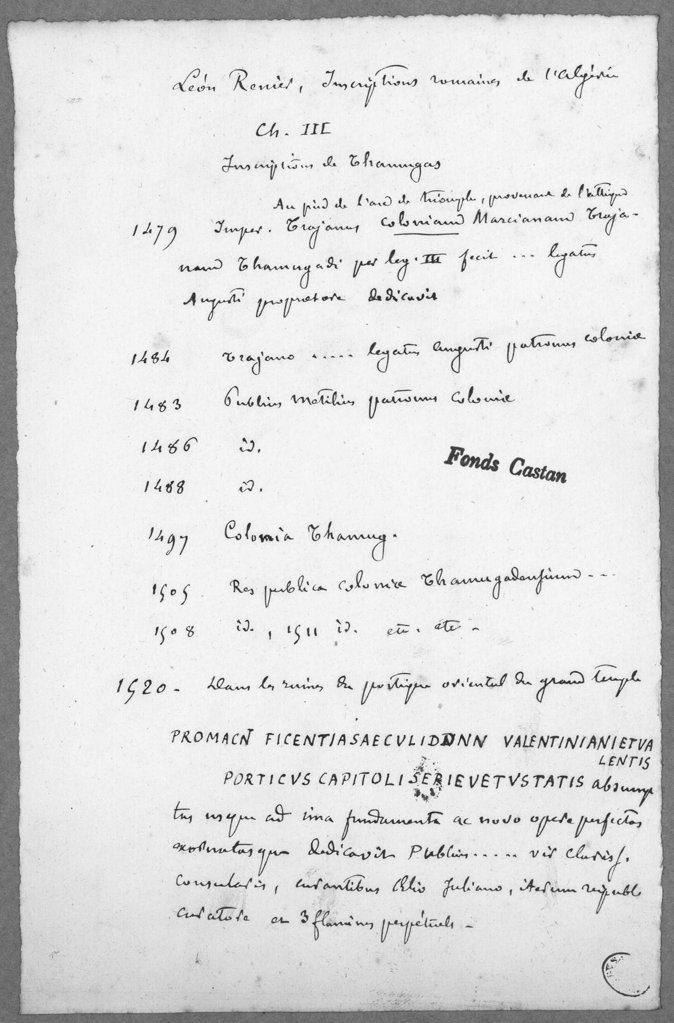 Léon Renier, Inscriptions romaines de l'Algérie
Ch. III
Inscriptions de Thamugas
Au pied de l'arc de triomphe, provenant de l'attique
1479 Imper. Trajanus coloniam Marcianam Traja-
nam Thamugadi per leg. III fecit ... legatus
Augusti propretore dedicavit
1484 Trajano ..... legatus augusti patronus coloniæ
1483 Publius Metilius patronus coloniæ
1486 id.
Fonds Castan
1488 id.
1497 Colonia Thamug.
1505 Res publica coloniæ Thamugadensium ...
1508 id., 1511 id. etc. etc.
1520. Dans les ruines du portique oriental du grand temple
PROMACN FICENTIASAECVLIDNNN VALENTINIANIETVA
LENTIS
PORTICVS CAPITOLISERIEVETVSTATIS absump
tas usque ad ima fundamenta ac novo opere perfectas
exornatasque dedicavit Publius ..... vir clariss.
Consularis, curantibus Ælio Juliano, iterum reipubl
curatore et 3 flamines perpétuels.